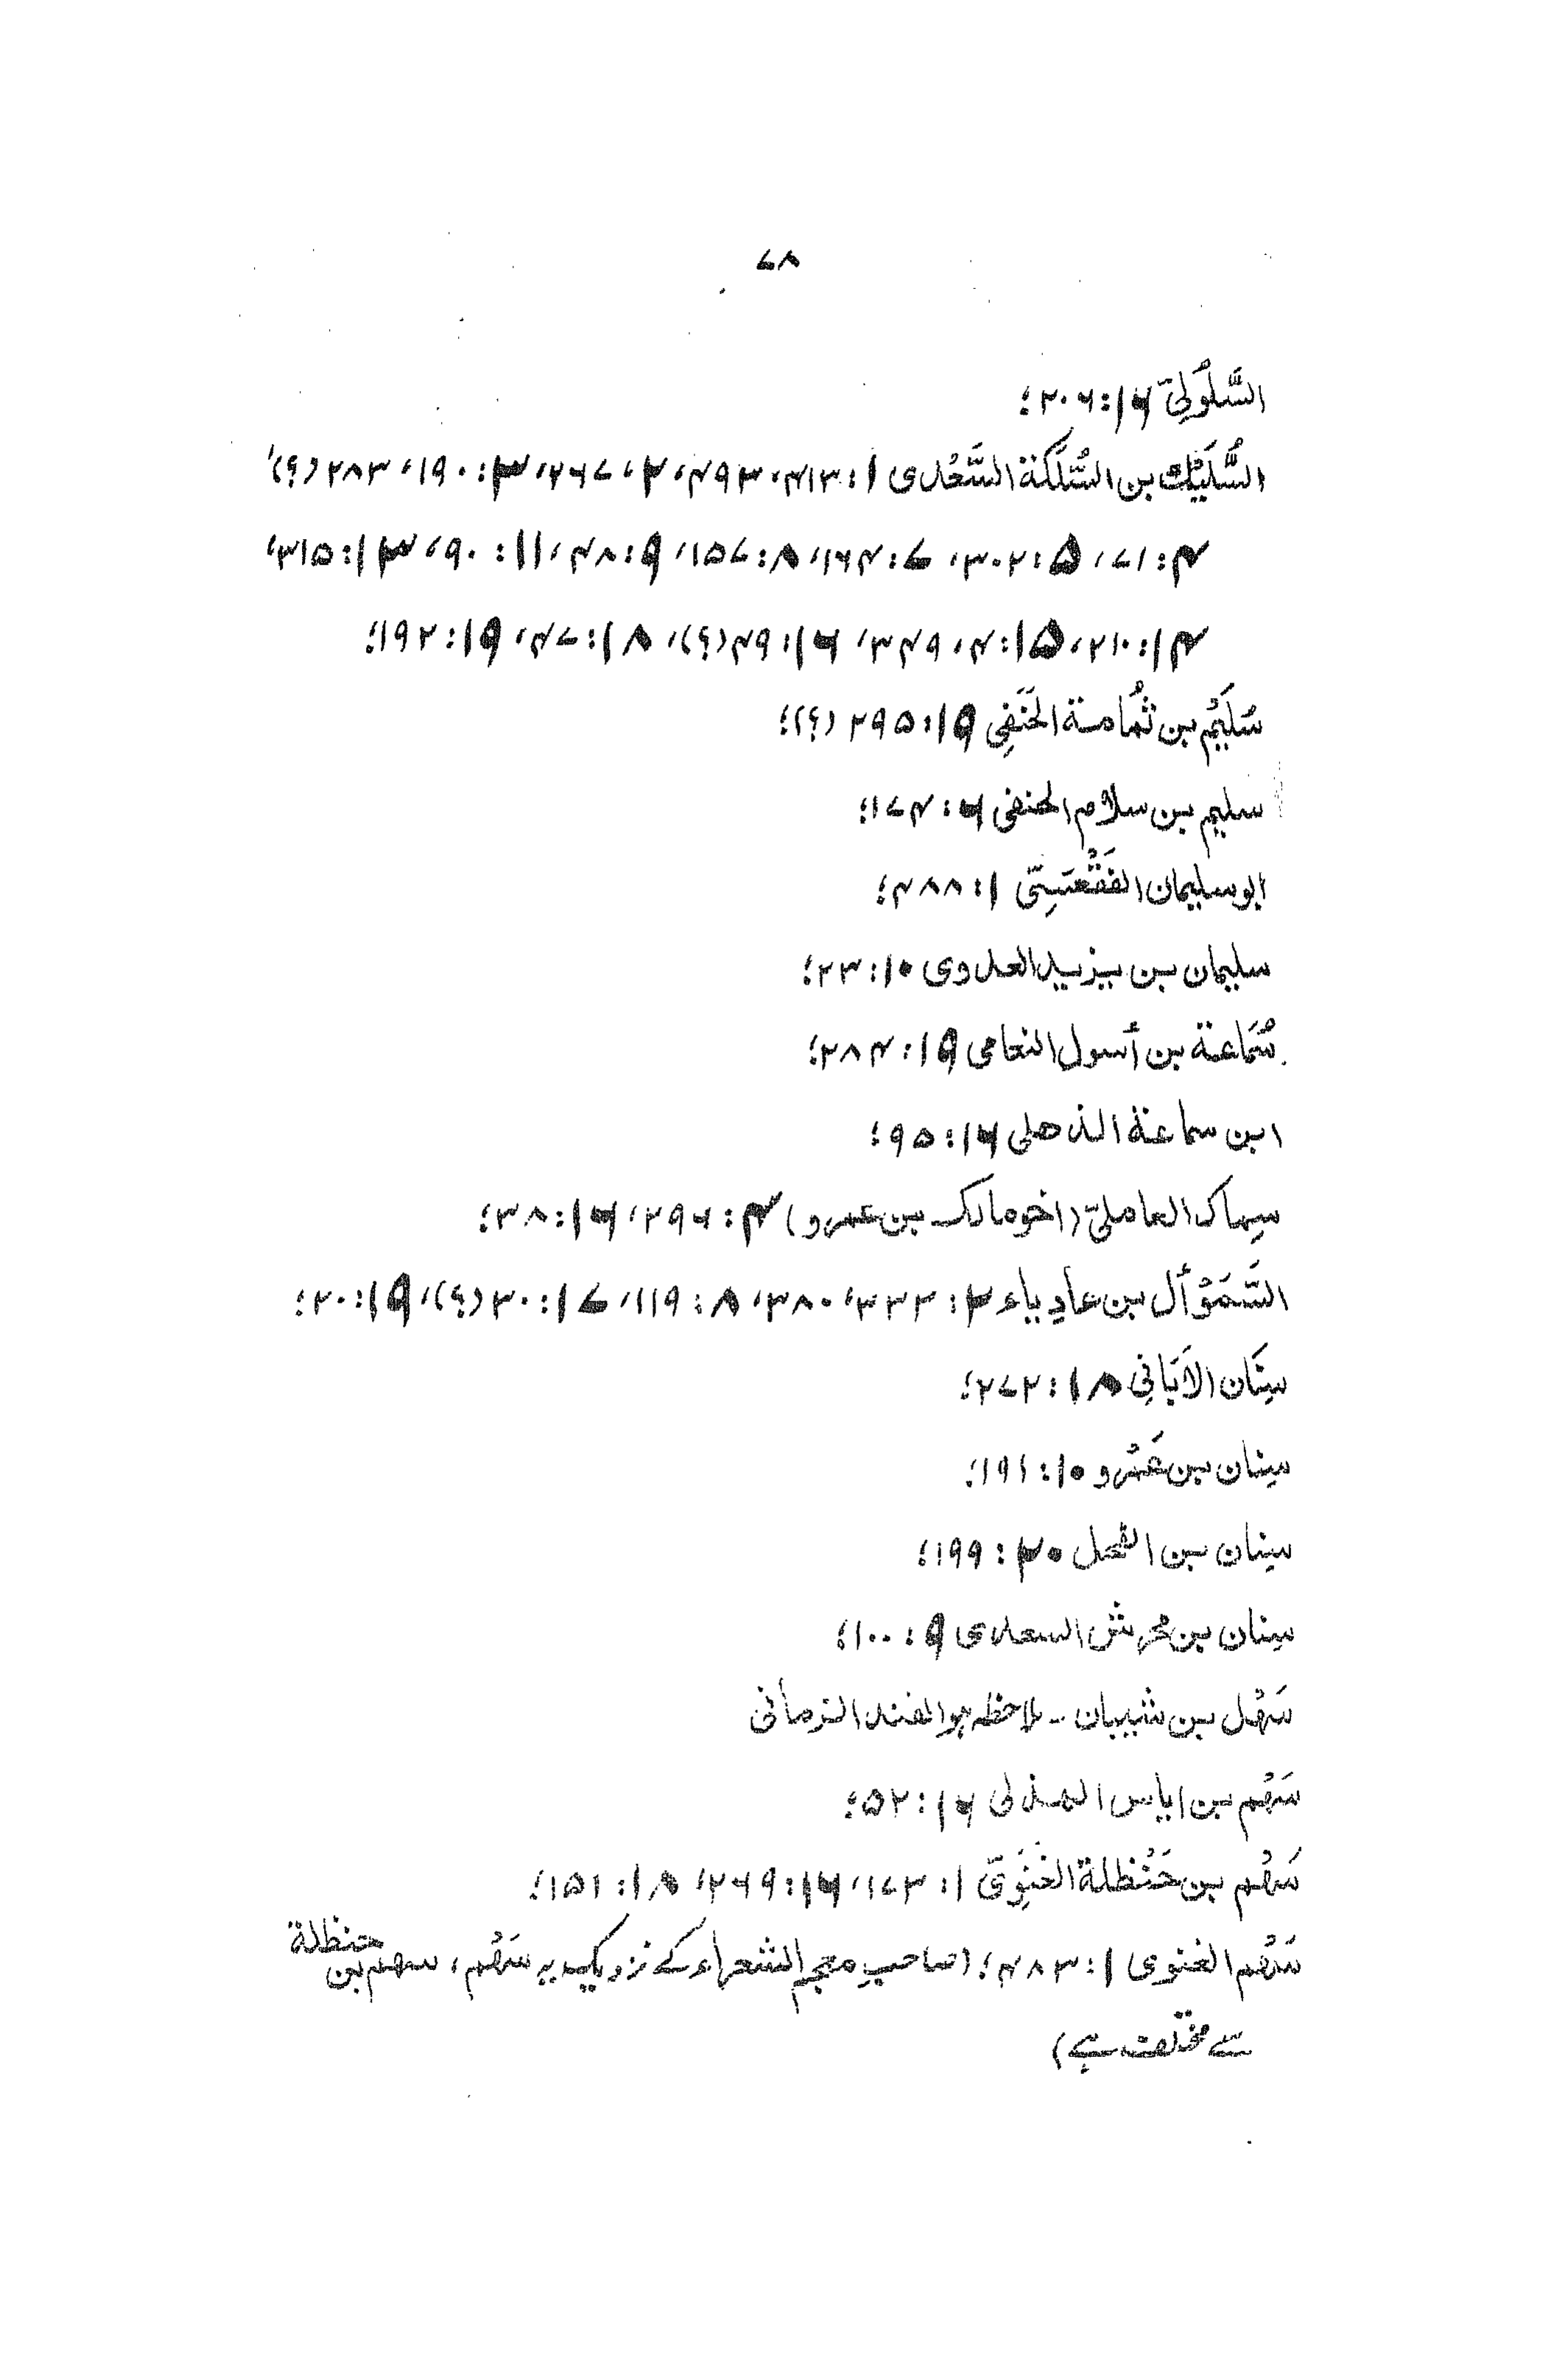 ۷۸
السَّلُولِیّ ۱۶: ۲۰۶؛
السُّلَیْک بن السُّلَکَة السَّعْدی ۱: ۴۱۳، ۴۹۳، ۲، ۲۶۷، ۳: ۱۹۰، ۲۸۳ (؟)،
۴: ۷۱، ۵: ۳۰۲، ۷: ۱۶۴، ۸: ۱۵۷، ۹: ۴۸، ۱۱: ۹۰، ۱۳: ۳۱۵،
۱۴: ۲۱۰، ۱۵: ۴، ۳۴۹، ۱۶: ۴۹ (؟)، ۱۸: ۴۷، ۱۹: ۱۹۲؛
سُلَیْم بن ثُمَامة الحَنَفِی ۱۹: ۲۹۵ (؟)؛
سلیم بن سلام الحنفی ۶: ۱۷۴؛
ابو سلیمان الفَقْعَسِیّ ۱: ۴۸۸؛
سلیمان بن یزید العدوی ۱۰: ۲۳؛
سُمَاعة بن أسول النعامی ۱۹: ۲۸۴؛
ابن سماعة الذهلی ۱۶: ۹۵؛
سِماک العاملیّ (اخو مالک بن عمرو) ۴: ۲۹۶، ۱۶: ۳۸؛
السَّمَوْأل بن عادِیاء ۲: ۳۳۲، ۳۸۰، ۸: ۱۱۹، ۱۷: ۳۰ (؟)، ۱۹: ۲۰؛
سِنَان الاَبَانِی ۱۸: ۲۷۲؛
سِنان بن عَمْرو ۱۰: ۱۹۱؛
سِنان بن الفحل ۲۰: ۱۹۹؛
سِنان بن محرش السعدی ۹: ۱۰۰؛
سَهْل بن شیبان ۔ ملاحظہ ہو الفند الزمانی
سَهْم بن ایاس الهذلی ۱۶: ۵۲؛
سَهْم بن حَنْظلة الغَنَوِیّ ۱: ۱۷۳، ۱۶: ۲۶۹، ۱۸: ۱۵۱؛
سَهْم الغنوی ۱: ۴۸۳؛ (صاحبِ معجم الشعراء کے نزدیک یہ سَهْم، سهم بن حنظلة
سے مختلف ہے)